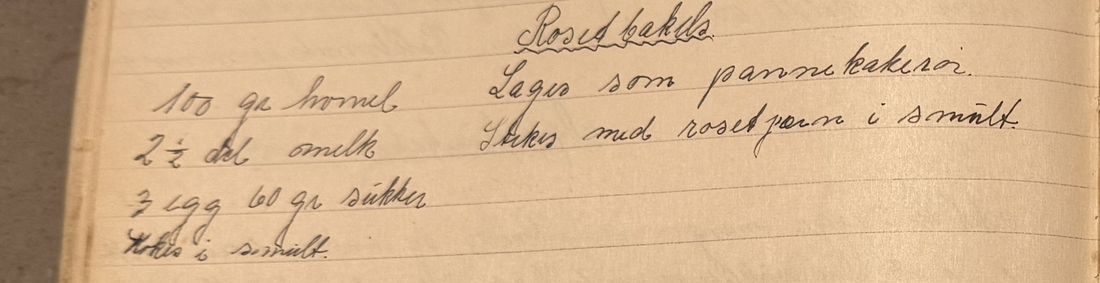 Rosetbakels
100 gr hvmel
2 ½ del melk
3 egg 60 gr sukker
Kokes i smult.
Lages som pannekakerør.
Stekes med rosetjærn i smult.